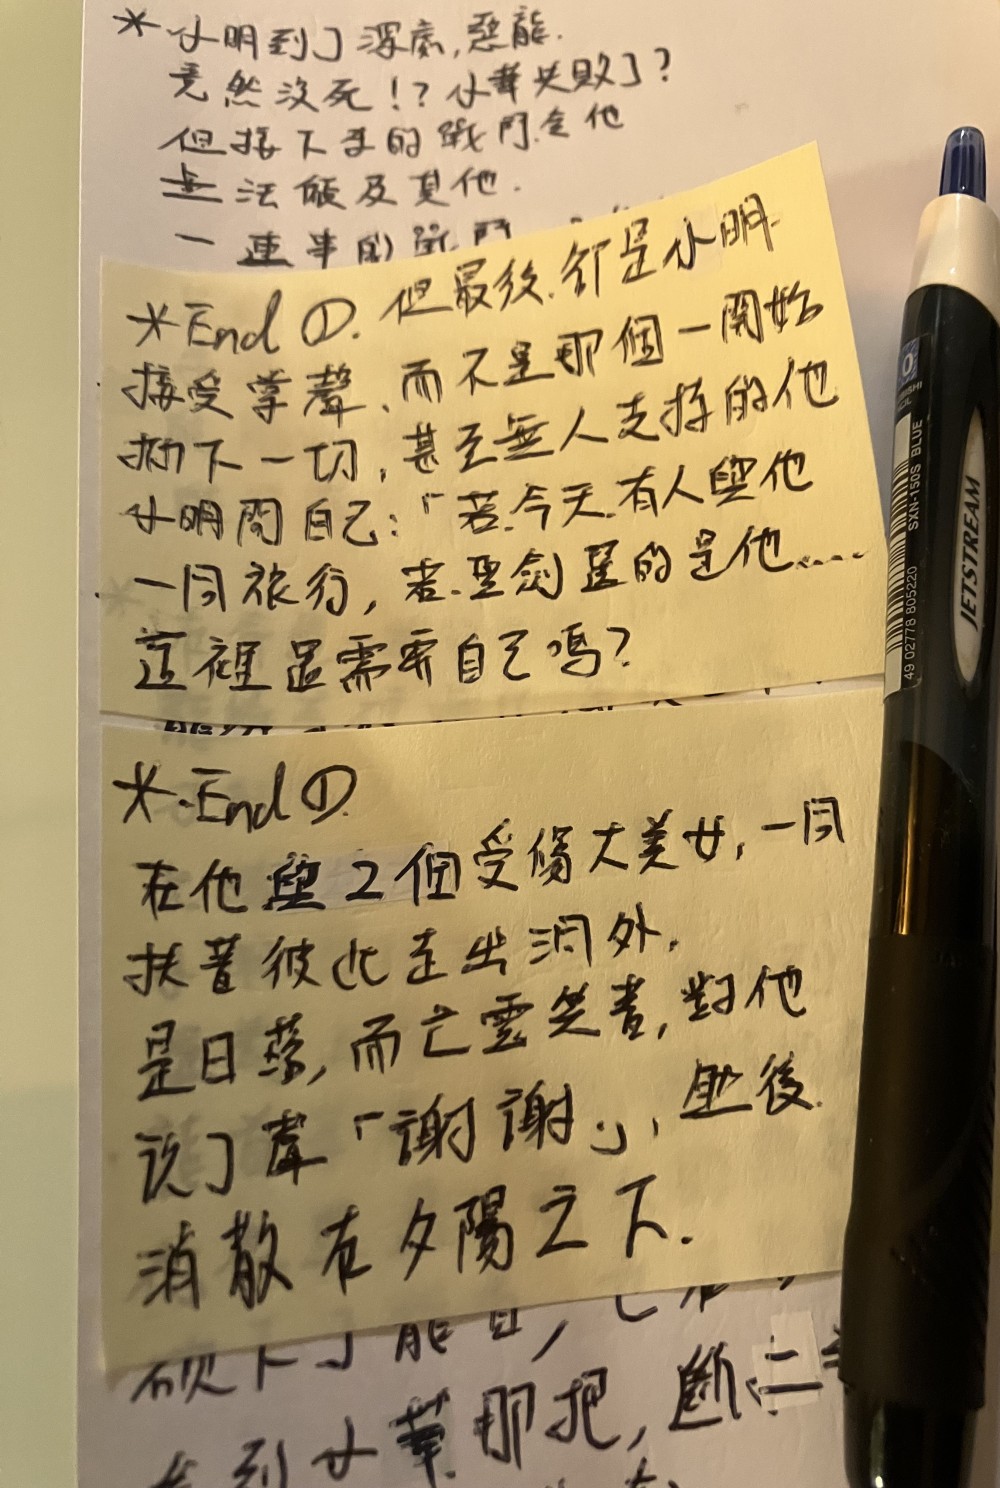 *小明到了深處,惡龍.
竟然沒死!?小華失敗了?
但接下來的戰鬥,令他
無法顧及其他.
一連串的戰鬥
*End①.但最後.卻是小明.
接受掌聲、而不是那個一開始
扔下一切,甚至無人支持的他
小明問自己:「若.今天.有人與他
一同旅行,若.聖劍選的是他....
這裡還需要自己嗎?
*.End①
在他與2個受傷大美女,一同
扶著彼此走出洞外.
是日落,而亡靈笑著,對他
说了聲「謝謝」,然後.
消散在夕陽之下.
砍下了龍首,
看到小華那把,斷
JETSTREAM
SXN-150S BLUE
49 02778 805220